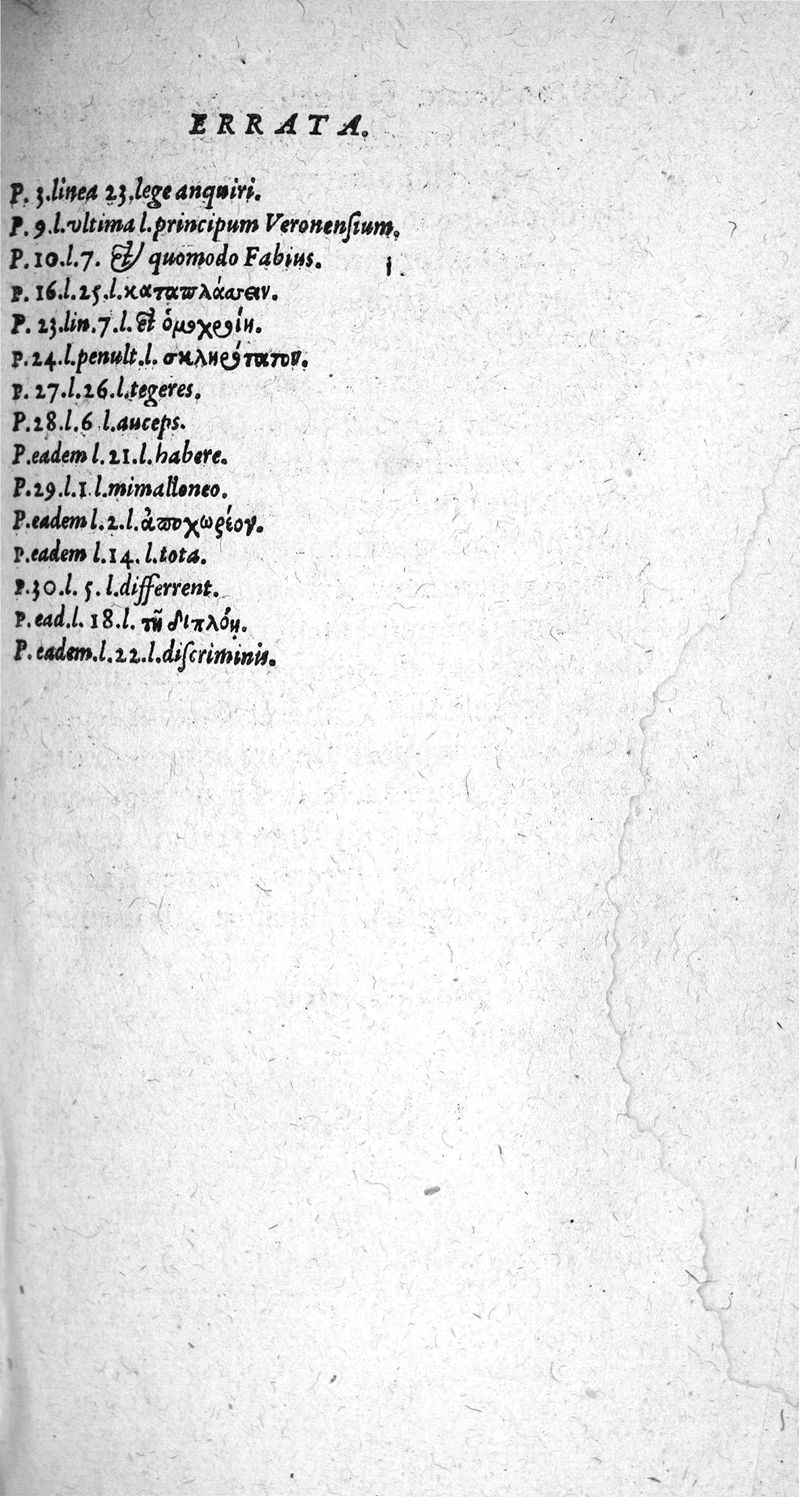 ERRATA.
P. 3.linea 23.lege anquiri.
P. 9.l.vltima l.principum Veronenſium.
P. 10.l.7. & quomodo Fabius.
P. 16.l.25.l.καταπλάσσειν.
P. 23.lin.7.l.&
P. 24.l.penult.l. σκληρότατον.
P. 27.l.26.l.tegeres.
P.28.l.6 l.auceps.
P.eadem l.21.l.habere.
P.29.l.1 l.mimalloneo.
P.eadem l.2.l.ἀποχωρέον.
P.eadem l.14. l.tota.
P.30.l. 5. l.differrent.
P.ead.l. 18.l. τῆ διπλόη.
P. eadem.l.22.l.diſcriminis.